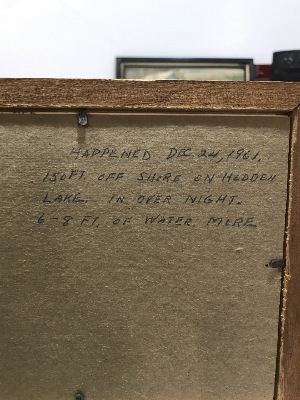 HAPPENED DEC 24, 1961,
150 FT. OFF SHORE ON HODDEN
LAKE. IN OVER NIGHT.
6-8 FT. OF WATER MORE